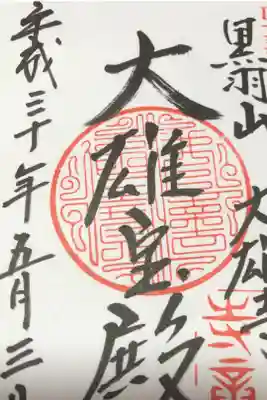 黒羽山 大雄寺
大雄宝殿
平成三十年五月三日